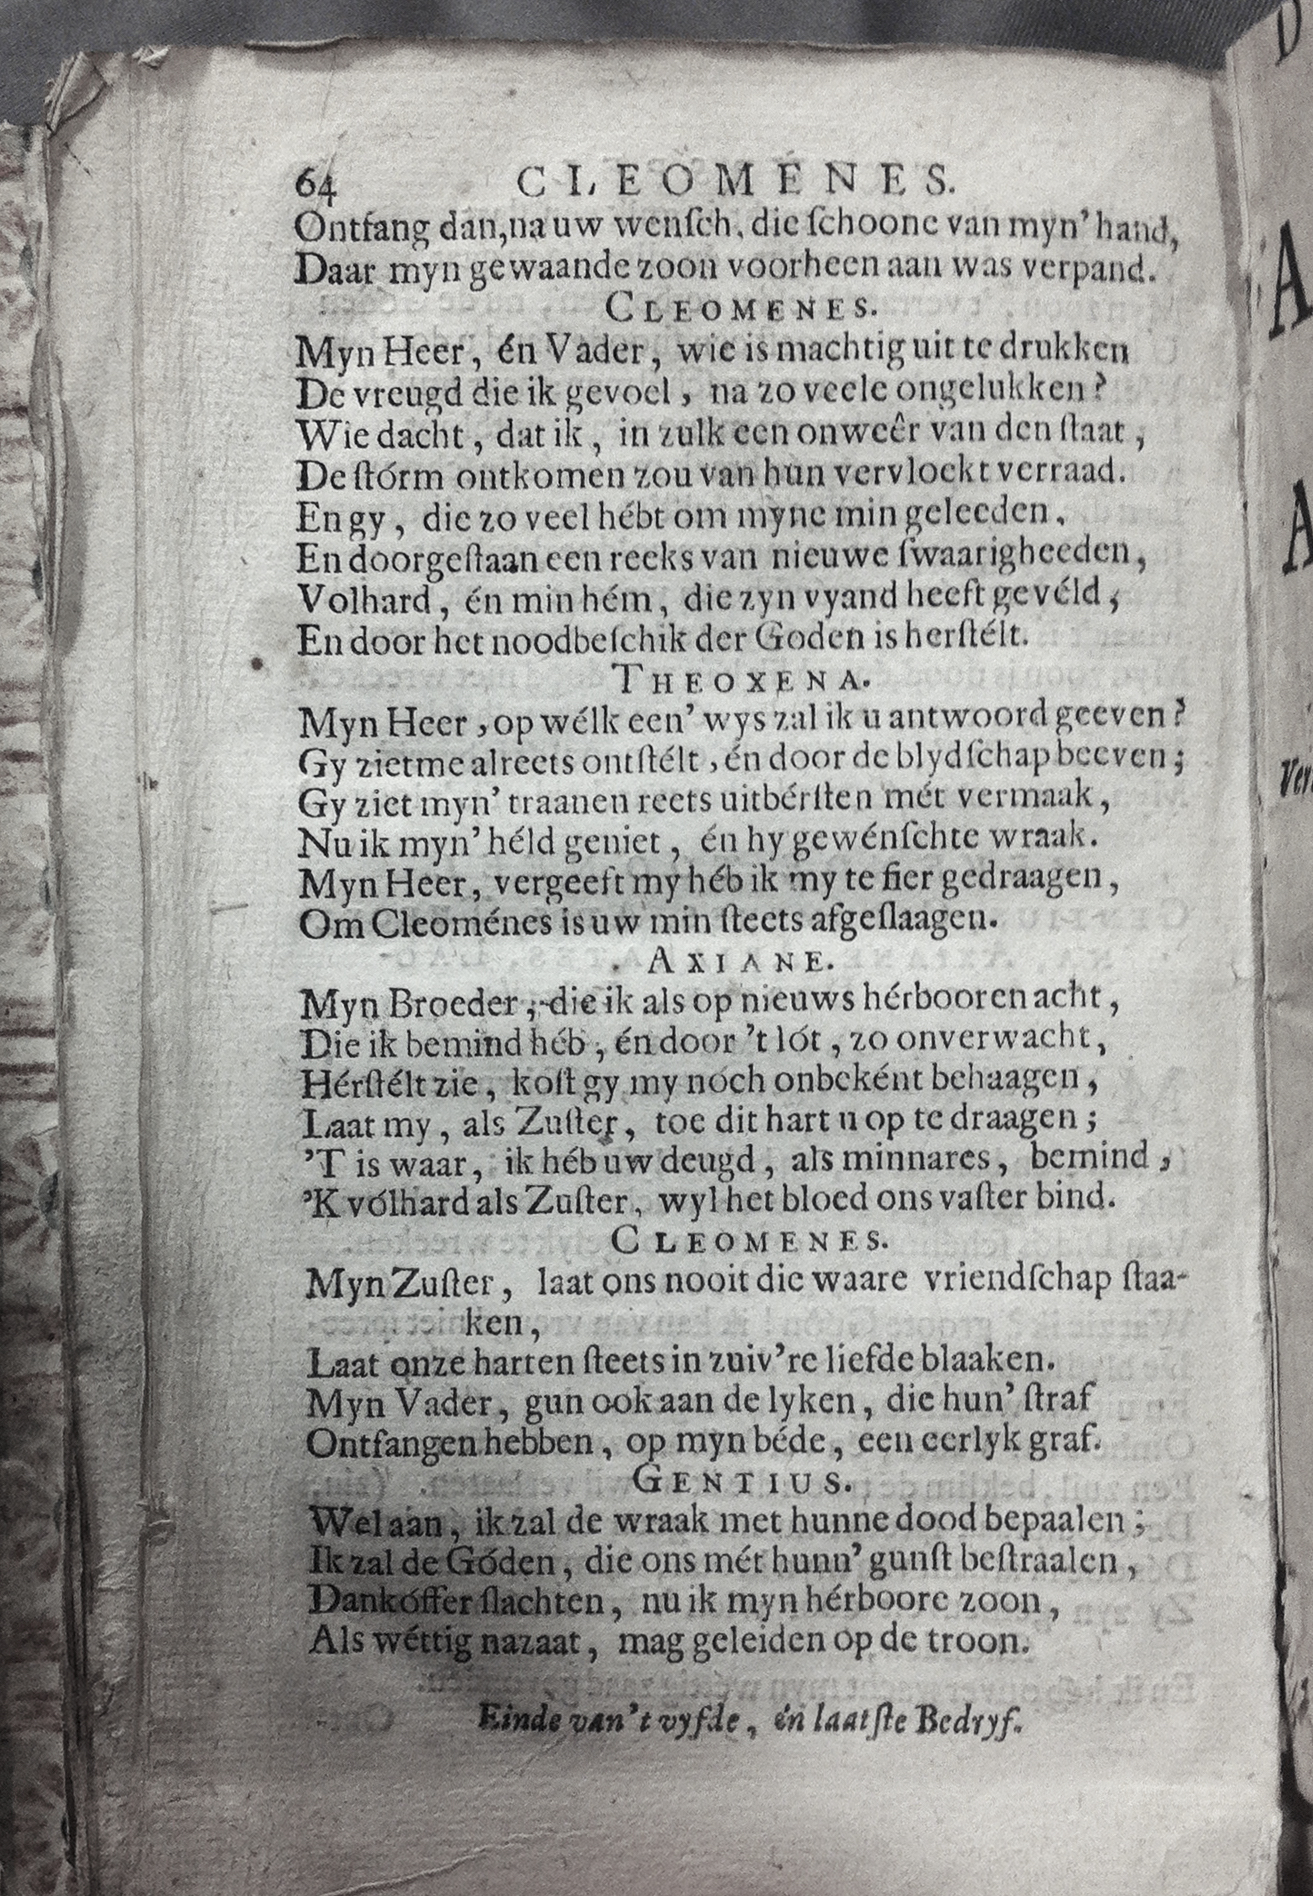 64 CLEOMENES.
Ontfang dan, na uw wenſch, die ſchoone van myn' hand,
Daar myn gewaande zoon voorheen aan was verpand.
CLEOMENES.
Myn Heer, én Vader, wie is machtig uit te drukken
De vreugd die ik gevoel, na zo veele ongelukken?
Wie dacht, dat ik, in zulk een onweêr van den ſtaat,
De ſtórm ontkomen zou van hun vervloekt verraad.
En gy, die zo veel hébt om myne min geleeden,
En doorgeſtaan een reeks van nieuwe ſwaarigheeden,
Volhard, én min hém, die zyn vyand heeft gevéld,
En door het noodbeſchik der Goden is herſtélt.
THEOXENA.
Myn Heer, op wélk een' wys zal ik u antwoord geeven?
Gy zietme alreets ontſtélt, én door de blydſchap beeven;
Gy ziet myn' traanen reets uitbérſten mét vermaak,
Nu ik myn' héld geniet, én hy gewénſchte wraak.
Myn Heer, vergeeft my héb ik my te fier gedraagen,
Om Cleoménes is uw min ſteets afgeſlaagen.
AXIANE.
Myn Broeder, die ik als op nieuws hérbooren acht,
Die ik bemind héb, én door 't lót, zo onverwacht,
Hérſtélt zie, koſt gy my nóch onbeként behaagen,
Laat my, als Zuſter, toe dit hart u op te draagen;
'T is waar, ik héb uw deugd, als minnares, bemind,
'K vólhard als Zuſter, wyl het bloed ons vaſter bind.
CLEOMENES.
Myn Zuſter, laat ons nooit die waare vriendſchap ſtaa-
ken,
Laat onze harten ſteets in zuiv're liefde blaaken.
Myn Vader, gun ook aan de lyken, die hun' ſtraf
Ontfangen hebben, op myn béde, een eerlyk graf.
GENTIUS.
Wel aan, ik zal de wraak met hunne dood bepaalen;
Ik zal de Góden, die ons mét hunn' gunſt beſtraalen,
Dankóffer ſlachten, nu ik myn hérboore zoon,
Als wéttig nazaat, mag geleiden op de troon.
Einde van't vyfde, én laatſte Bedryf.
D
A
A
Ver